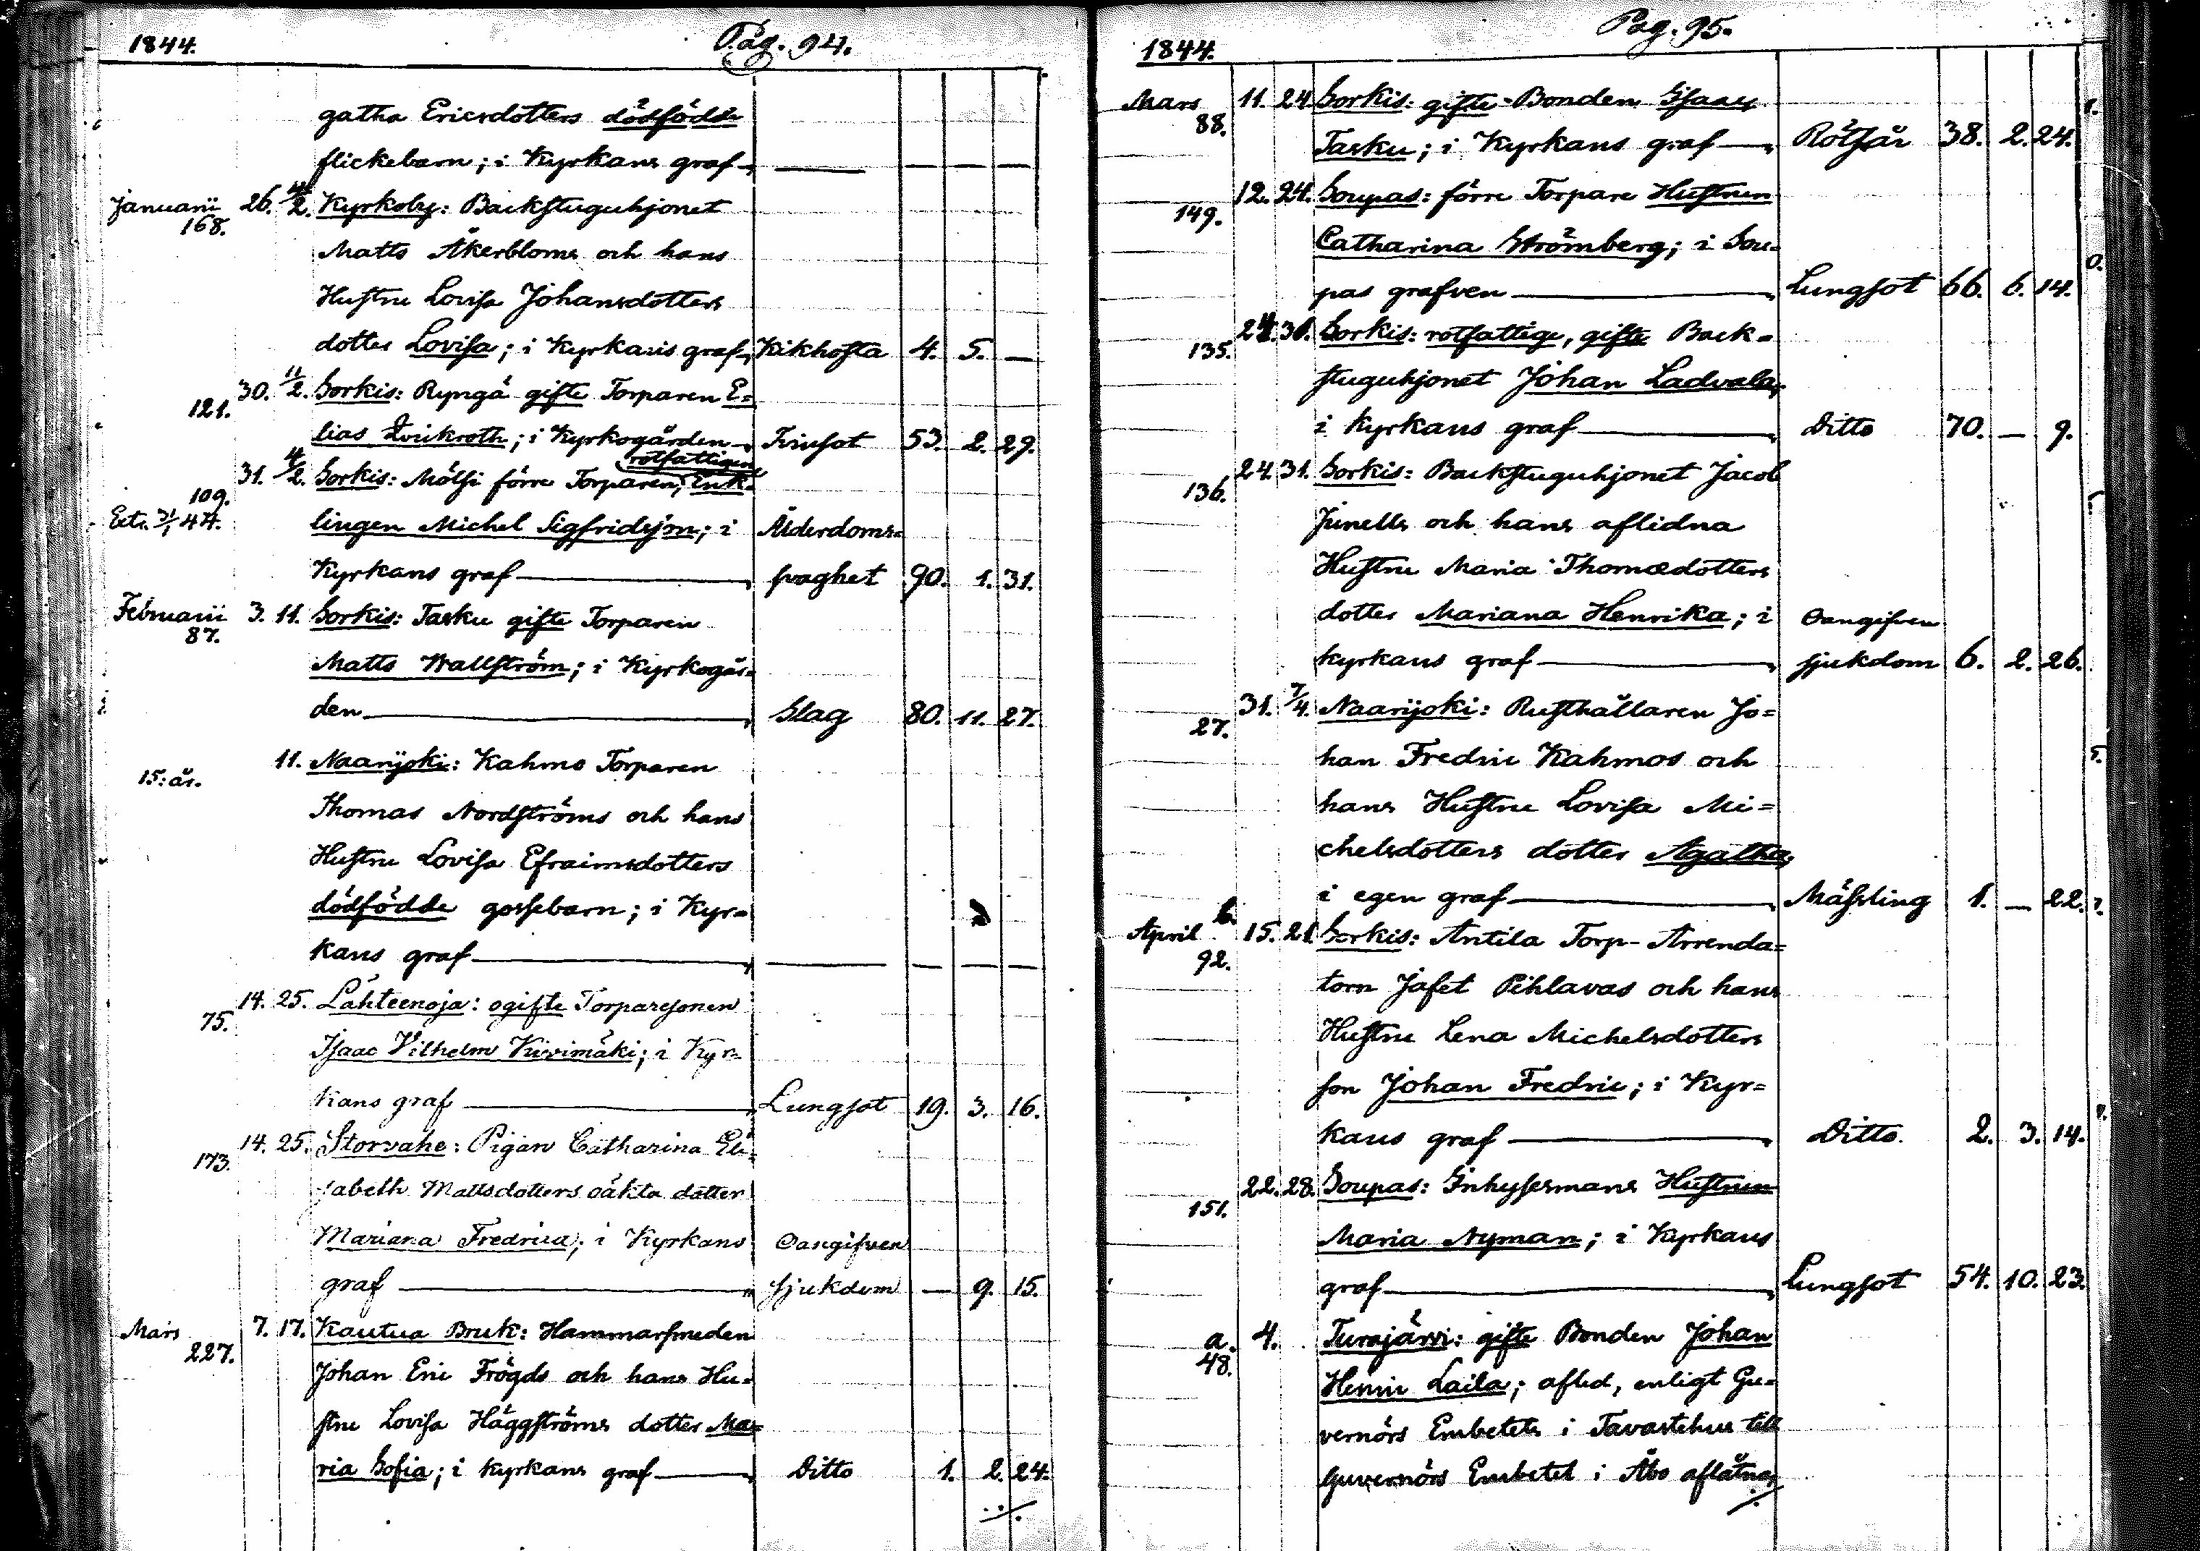 1844. Pag. 94.
gatha Ericsdotters dödfödde
flickebarn; i Kyrkans graf
Januarii 26. 4/2. Kyrkoby: Backstuguhjonet
168.
Matts Åkerbloms och hans
Hustru Lovisa Johansdotters
dotter Lovisa; i Kyrkans graf, Kikhosta 4. 5. —
30. 11/2. Sorkis: Ryngä gifte Torparen E=
121.
lias Qvickroth; i Kyrkogården Tvinsot 53. 2. 29.
rotfattigen
31. 4/2. Sorkis: Mölsi förre Torparen, Enk=
109.
Extr. 31/1 44. lingen Michel Sigfridsson; i Ålderdoms=
Kyrkans graf svaghet 90. 1. 31.
Februarii 3. 11. Sorkis: Tasku gifte Torparen
87.
Matts Wallström; i Kyrkogår=
den Slag 80. 11. 27.
11. Naarijoki: Kahmo Torparen
15: år.
Thomas Nordströms och hans
Hustru Lovisa Efraimsdotters
dödfödde gossebarn; i Kyr=
kans graf — — — —
14. 25. Lähteenoja: ogifte Torparesonen
75.
Isaac Vilhelm Kivimäki; i Kyr=
kans graf Lungsot 19. 3. 16.
14. 25. Storvahe: Pigan Catharina Eli=
173.
sabeth Mattsdotters oäkta dotter
Mariana Fredrica; i Kyrkans Oangifven
graf sjukdom — 9. 15.
Mars 7. 17. Kautua Bruk: Hammarsmeden
227.
Johan Eric Frögds och hans Hu=
stru Lovisa Häggströms dotter Ma=
ria Sofia; i kyrkans graf Ditto 1. 2. 24.
1844. Pag. 95.
Mars 11. 24 Sorkis: gifte Bonden Isaac
88.
Tasku; i Kyrkans graf Rötfär 38. 2. 24.
12. 24. Soupas: förre Torpare Hustrun
149.
Catharina Strömberg; i Sou=
pas grafven Lungsot 66. 6. 14.
24. 31. Sorkis: rotfattige, gifte Back=
135.
stuguhjonet Johan Ladvala,
i Kyrkans graf Ditto 70. — 9.
24. 31. Sorkis: Backstuguhjonet Jacob
136.
Junells och hans aflidna
Hustru Maria Thomædotters
dotter Mariana Henrika; i Oangifven
kyrkans graf sjukdom 6. 2. 26.
31. 7/4. Naarijoki: Rusthållaren Jo=
27.
han Fredric Kahmos och
hans Hustru Lovisa Mi=
chelsdotters dotter Agatha,
i egen graf Mässling 1. — 22.
April b 15. 21. Sorkis: Antila Torp-Arrenda=
92.
torn Jafet Pihlavas och hans
Hustru Lena Michelsdotters
son Johan Fredric; i Kyr=
kans graf Ditto. 2. 3. 14.
22. 28. Soupas: Inhysesmans Hustrun
151.
Maria Nyman; i Kyrkans
graf Lungsot 54. 10. 23.
a. 4. Turajärvi: gifte Bonden Johan
48.
Henric Laila; afled, enligt Gu=
vernörs Embetets i Tavastehus till
Guvernörs Embetet i Åbo aflåtna,